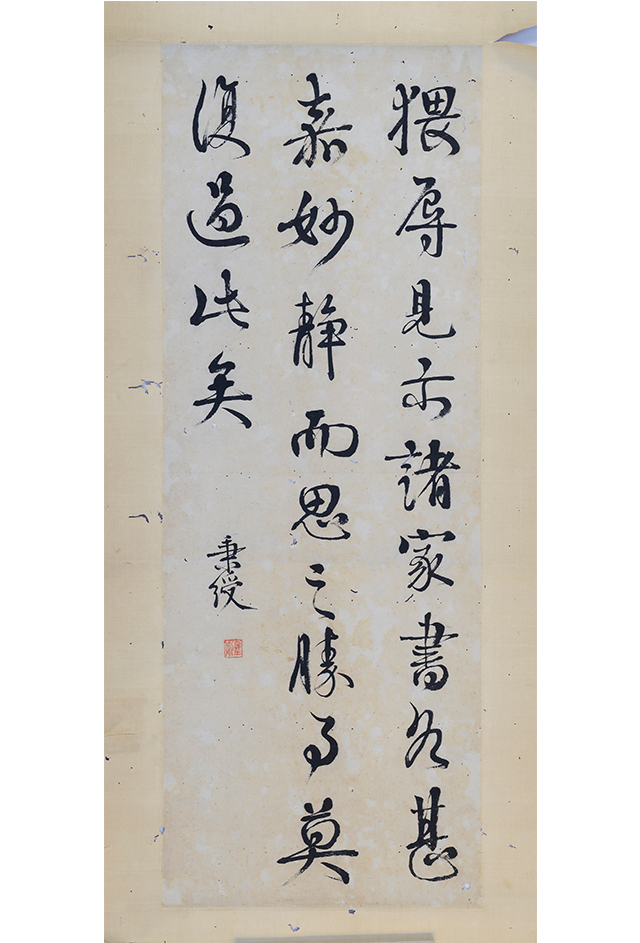 猥辱見示諸家書各甚
嘉妙静而思之勝事莫
復過此矣
秉綬